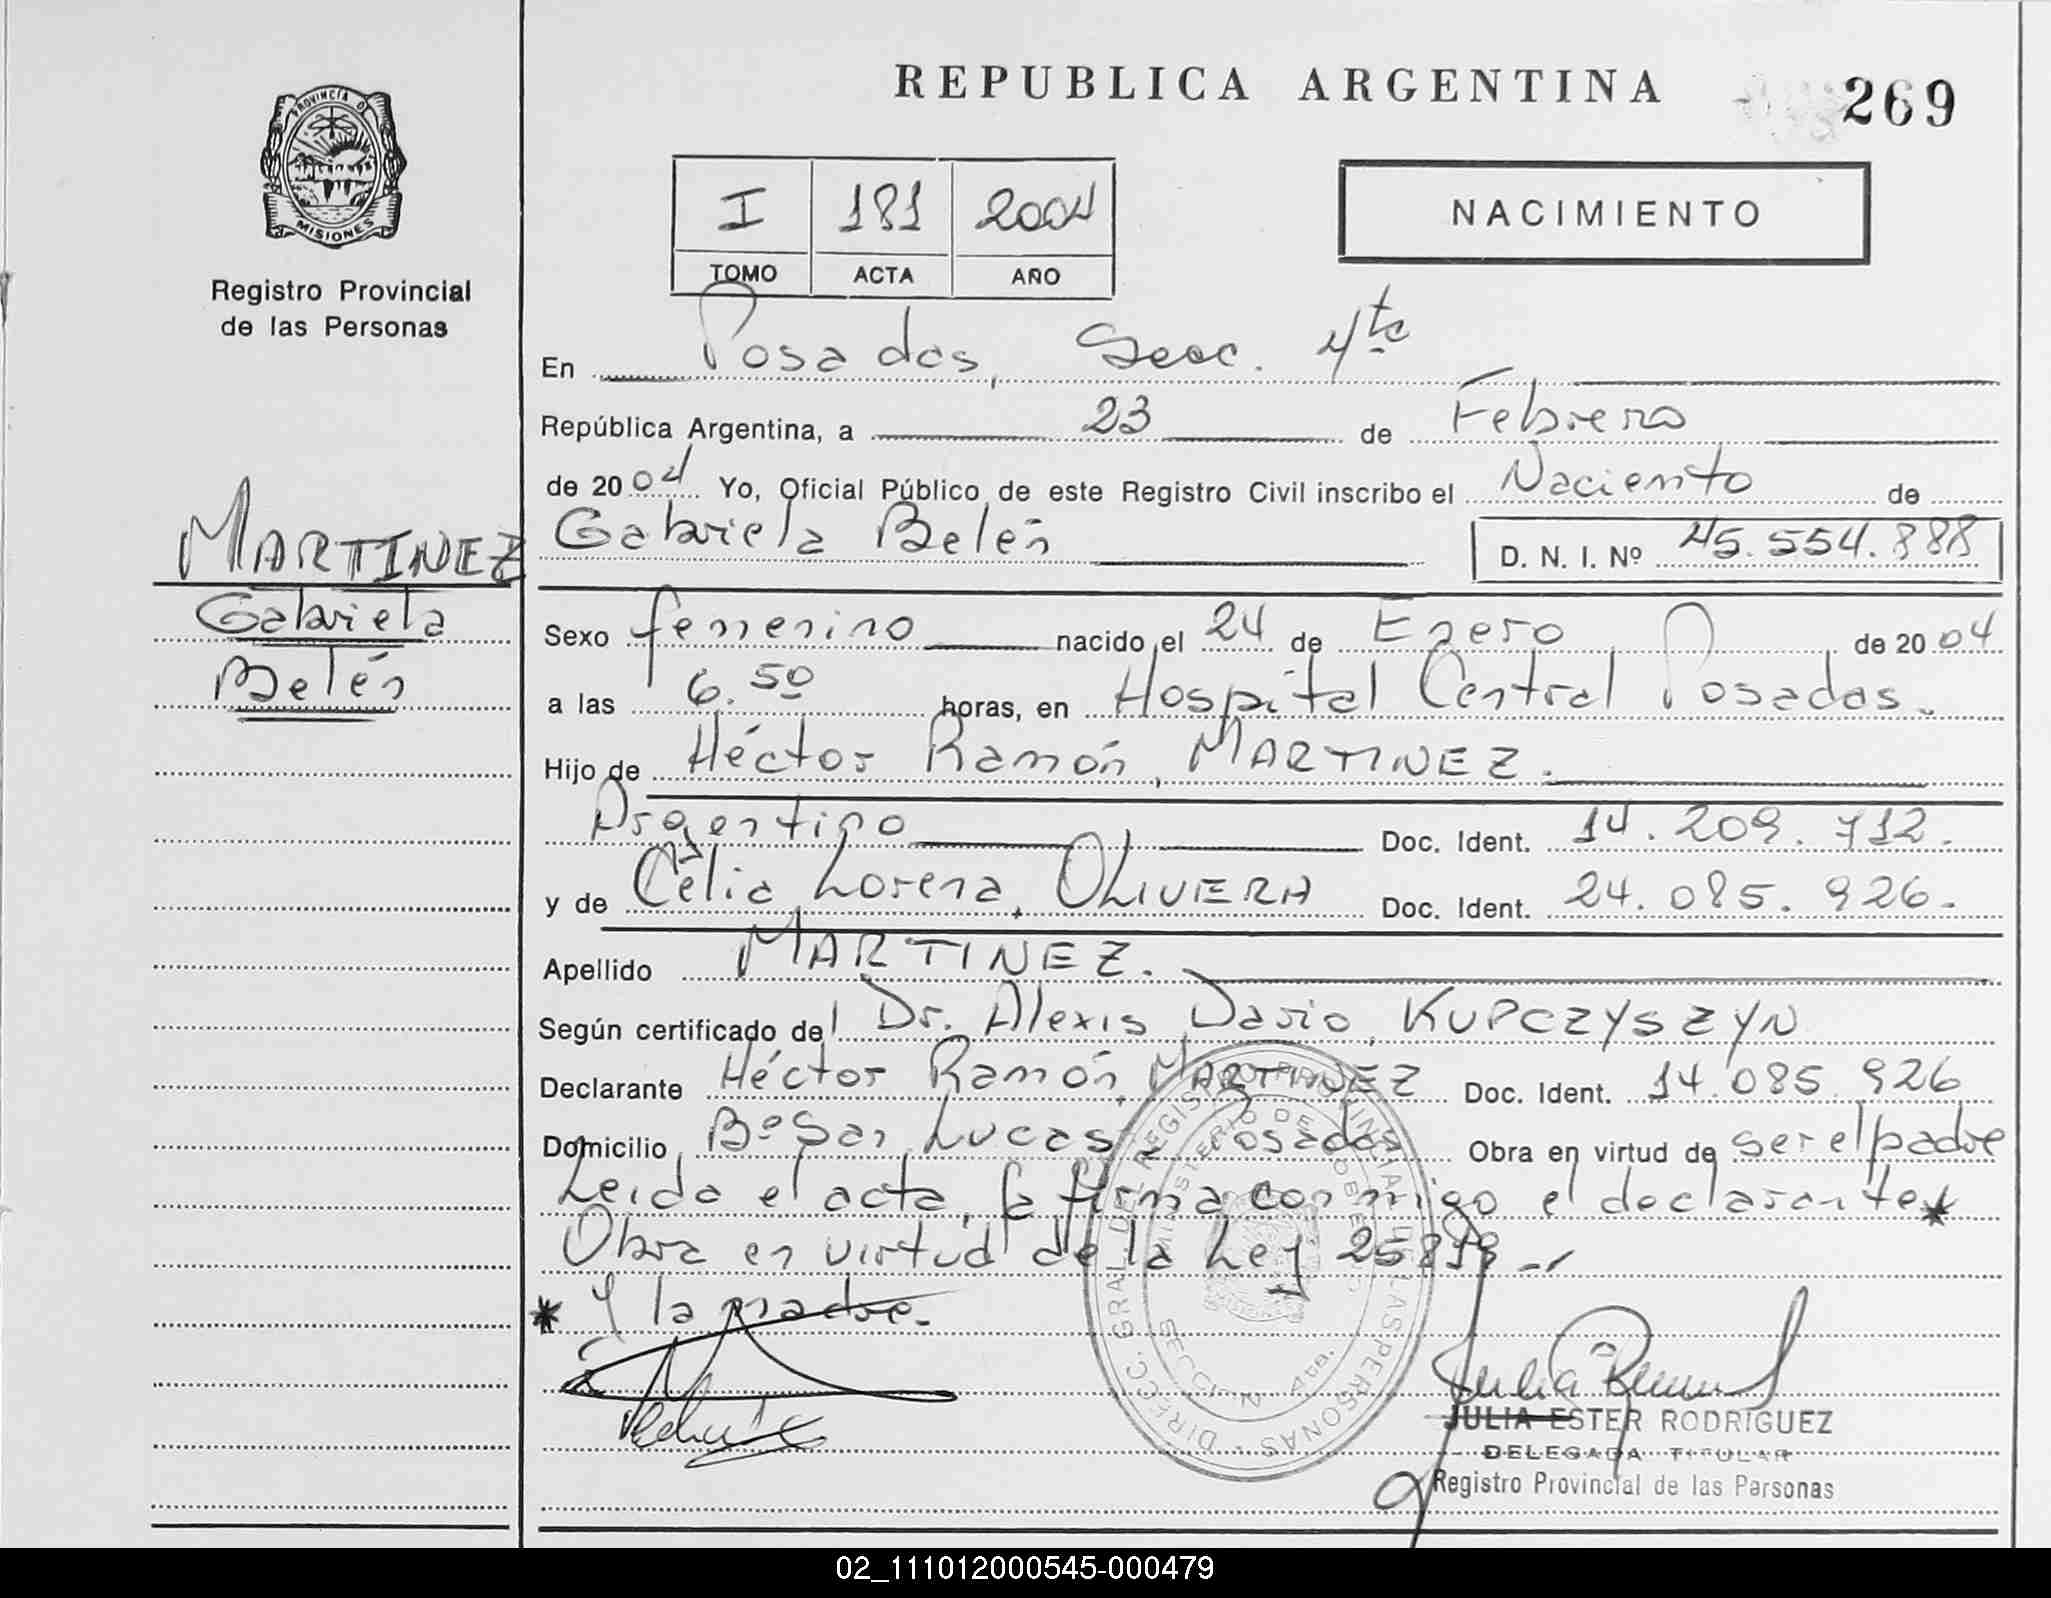 REPUBLICA ARGENTINA
269
PROVINCIA DE
MISIONES
Registro Provincial
de las Personas
I 181 2004
TOMO ACTA AÑO
NACIMIENTO
En Posadas, Secc. 4ta
República Argentina, a 23 de Febrero
de 2004 Yo, Oficial Público de este Registro Civil inscribo el Naciemto de
Gabriela Belén D. N. I. Nº 45.554.888
MARTINEZ
Gabriela
Belén
Sexo femenino nacido el 24 de Enero de 2004
a las 6.50 horas, en Hospital Central Posadas.
Hijo de Héctor Ramón, MARTINEZ.
Argentino Doc. Ident. 14.209.712.
y de Celia Lorena, OLIVERA Doc. Ident. 24.085.926.
Apellido MARTINEZ.
Según certificado del Dr. Alexis Dario, KUPCZYSZYN
Declarante Héctor Ramón, MARTINEZ Doc. Ident. 14.085.926
Domicilio Bº San Lucas, Posadas Obra en virtud de ser el padre
Leida el acta, la firma conmigo el declarante*
Obra en virtud de la Ley
* Y la madre.
DIRECC. GRAL. DEL REGISTRO PROVINCIAL DE LAS PERSONAS
MINISTERIO DE GOBIERNO
SECCION 4ta.
JULIA ESTER RODRIGUEZ
DELEGADA TITULAR
Registro Provincial de las Personas
02_111012000545-000479